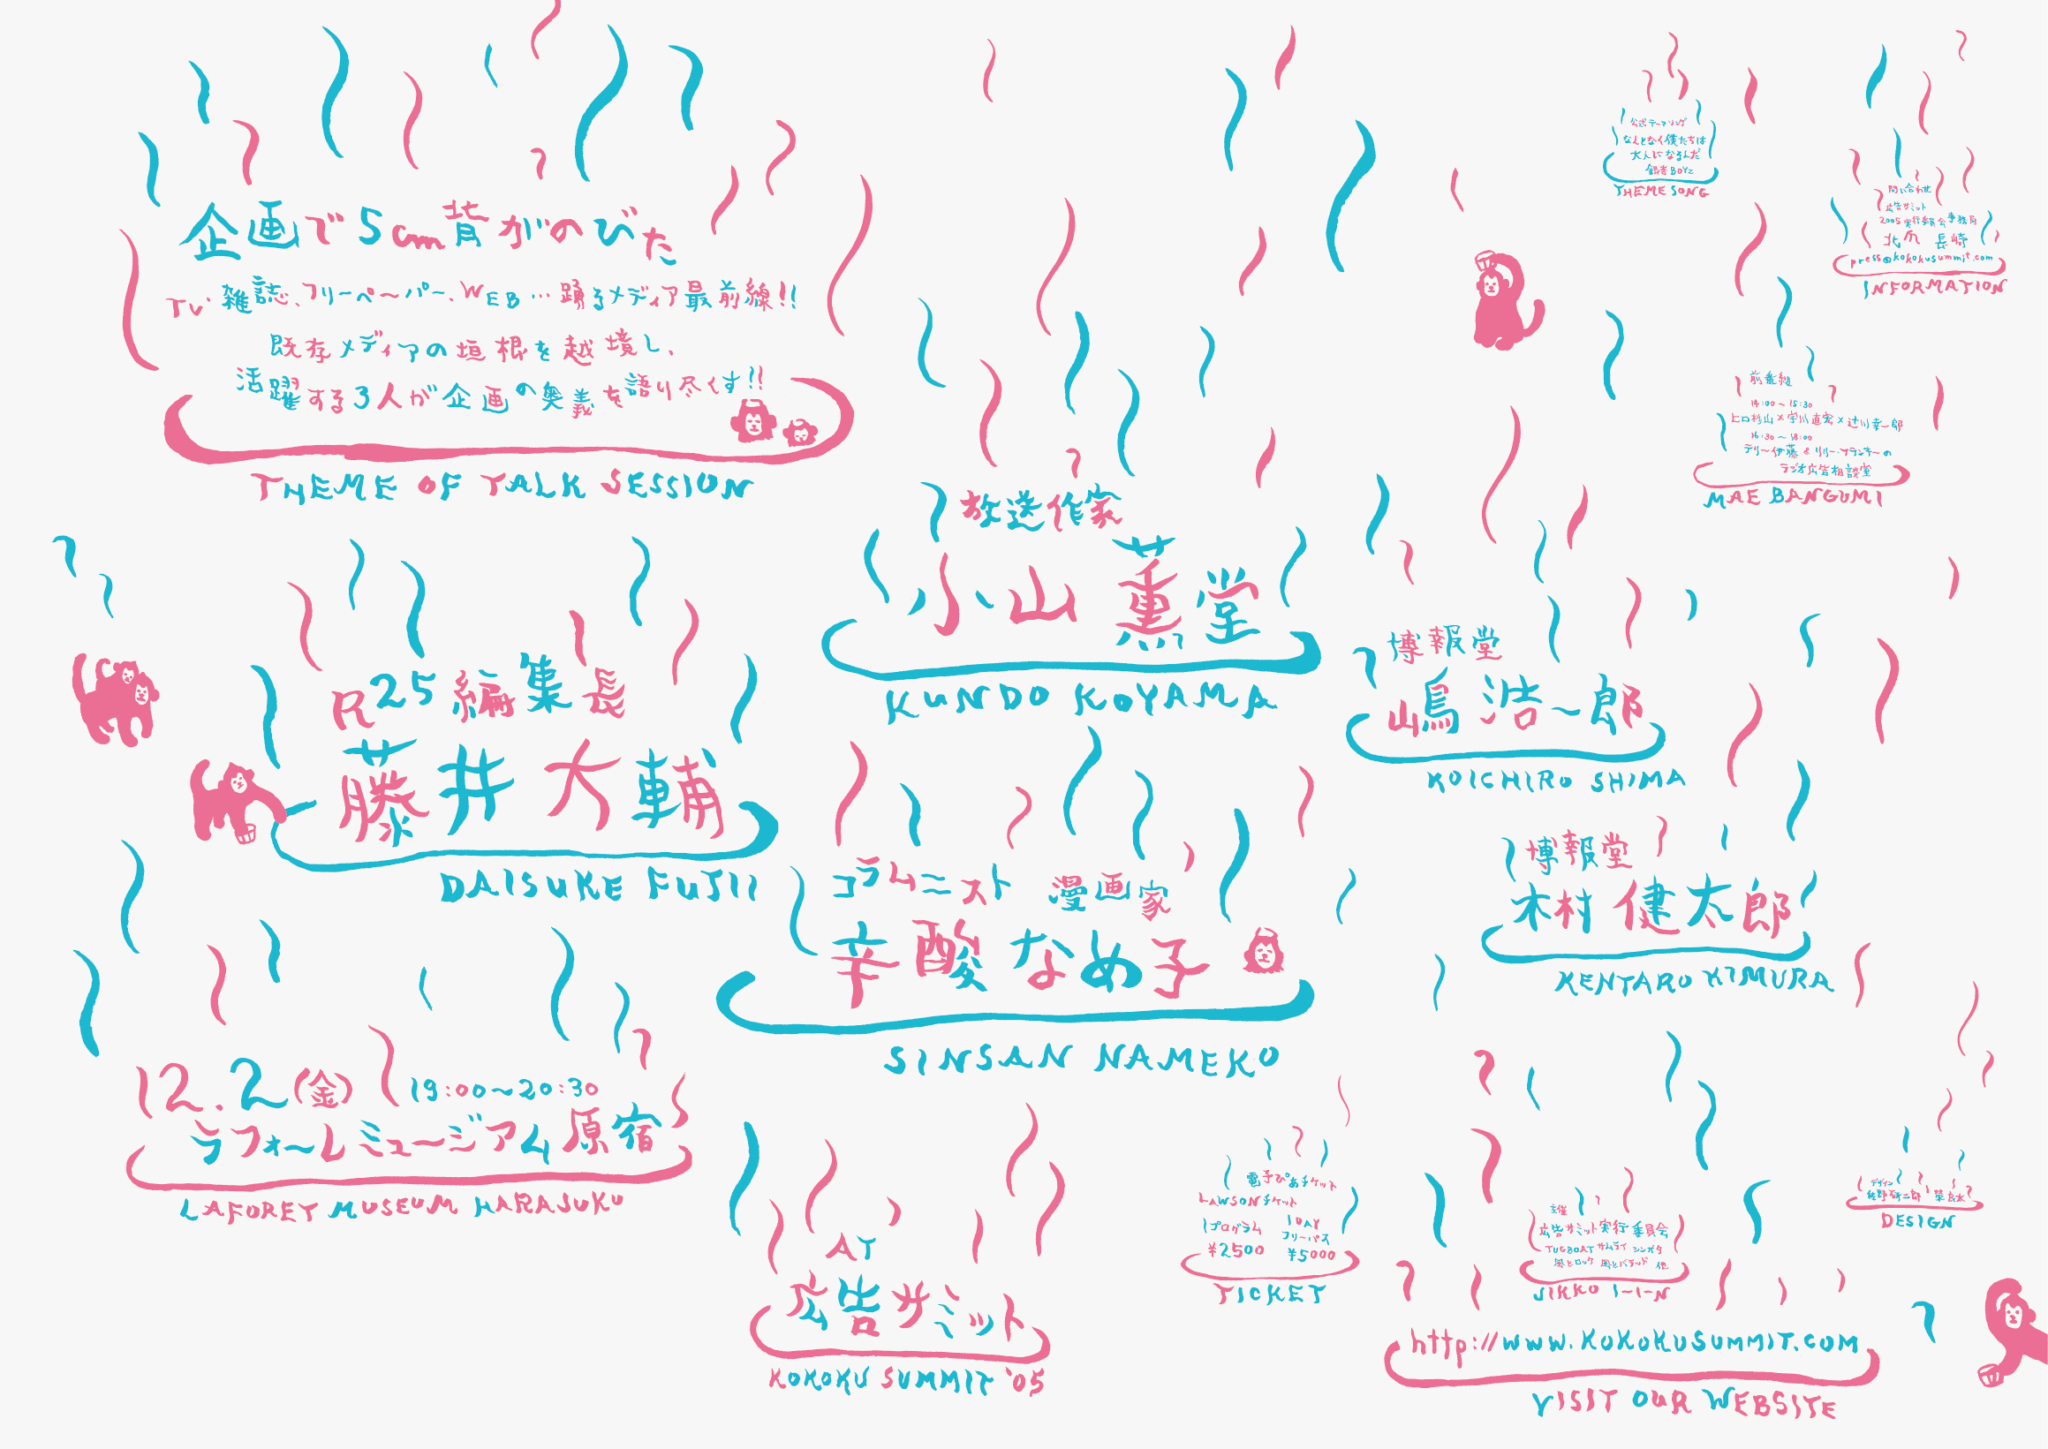 企画で5cm背がのびた
TV、雑誌、フリーペーパー、WEB…踊るメディア最前線!!
既存メディアの垣根を越境し、
活躍する3人が企画の奥義を語り尽くす!!
THEME OF TALK SESSION
放送作家
小山 薫堂
KUNDO KOYAMA
R25編集長
藤井大輔
DAISUKE FUJII
コラムニスト 漫画家
辛酸なめ子
SINSAN NAMEKO
博報堂
嶋浩一郎
KOICHIRO SHIMA
博報堂
木村健太郎
KENTARO KIMURA
12.2(金) 19:00〜20:30
ラフォーレミュージアム原宿
LAFOREY MUSEUM HARASUKU
AT
広告サミット
KOKOKU SUMMIT '05
公式テーマソング
なんとなく僕たちは
大人になるんだ
銀杏BOYZ
THEME SONG
問い合わせ
広告サミット
2005実行委員会事務局
長崎
press@kokokusummit.com
INFORMATION
前番組
14:00〜15:30
ヒロ杉山×宇川直宏×辻川幸一郎
16:30〜18:00
テリー伊藤とリリー・フランキーの
ラジオ広告相談室
MAE BANGUMI
電子ぴあチケット
LAWSONチケット
1プログラム
¥2500
1DAY
フリーパス
¥5000
TICKET
主催
広告サミット実行委員会
TUGBOAT サムライ シンガタ
風とロック 風とバラッド 他
JIKKO I-I-N
デザイン
佐野研二郎
DESIGN
http://www.KOKOKUSUMMIT.COM
VISIT OUR WEBSITE